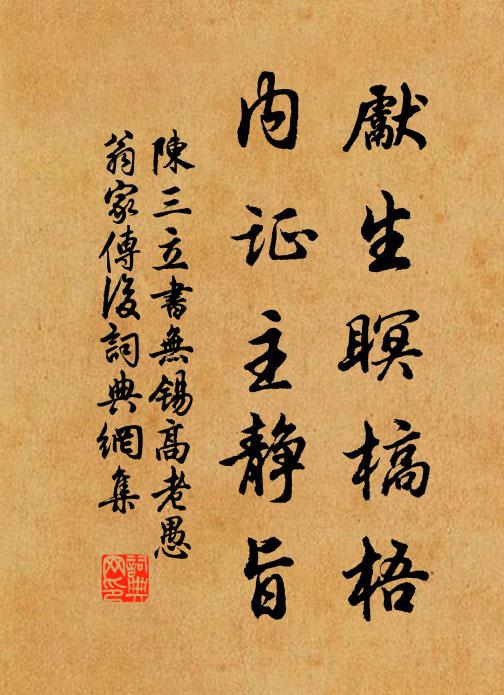 獻生瞑槁梧
内证主静旨
陳三立書無錫高老愚
翁家傳後詞典網集
詞典网印